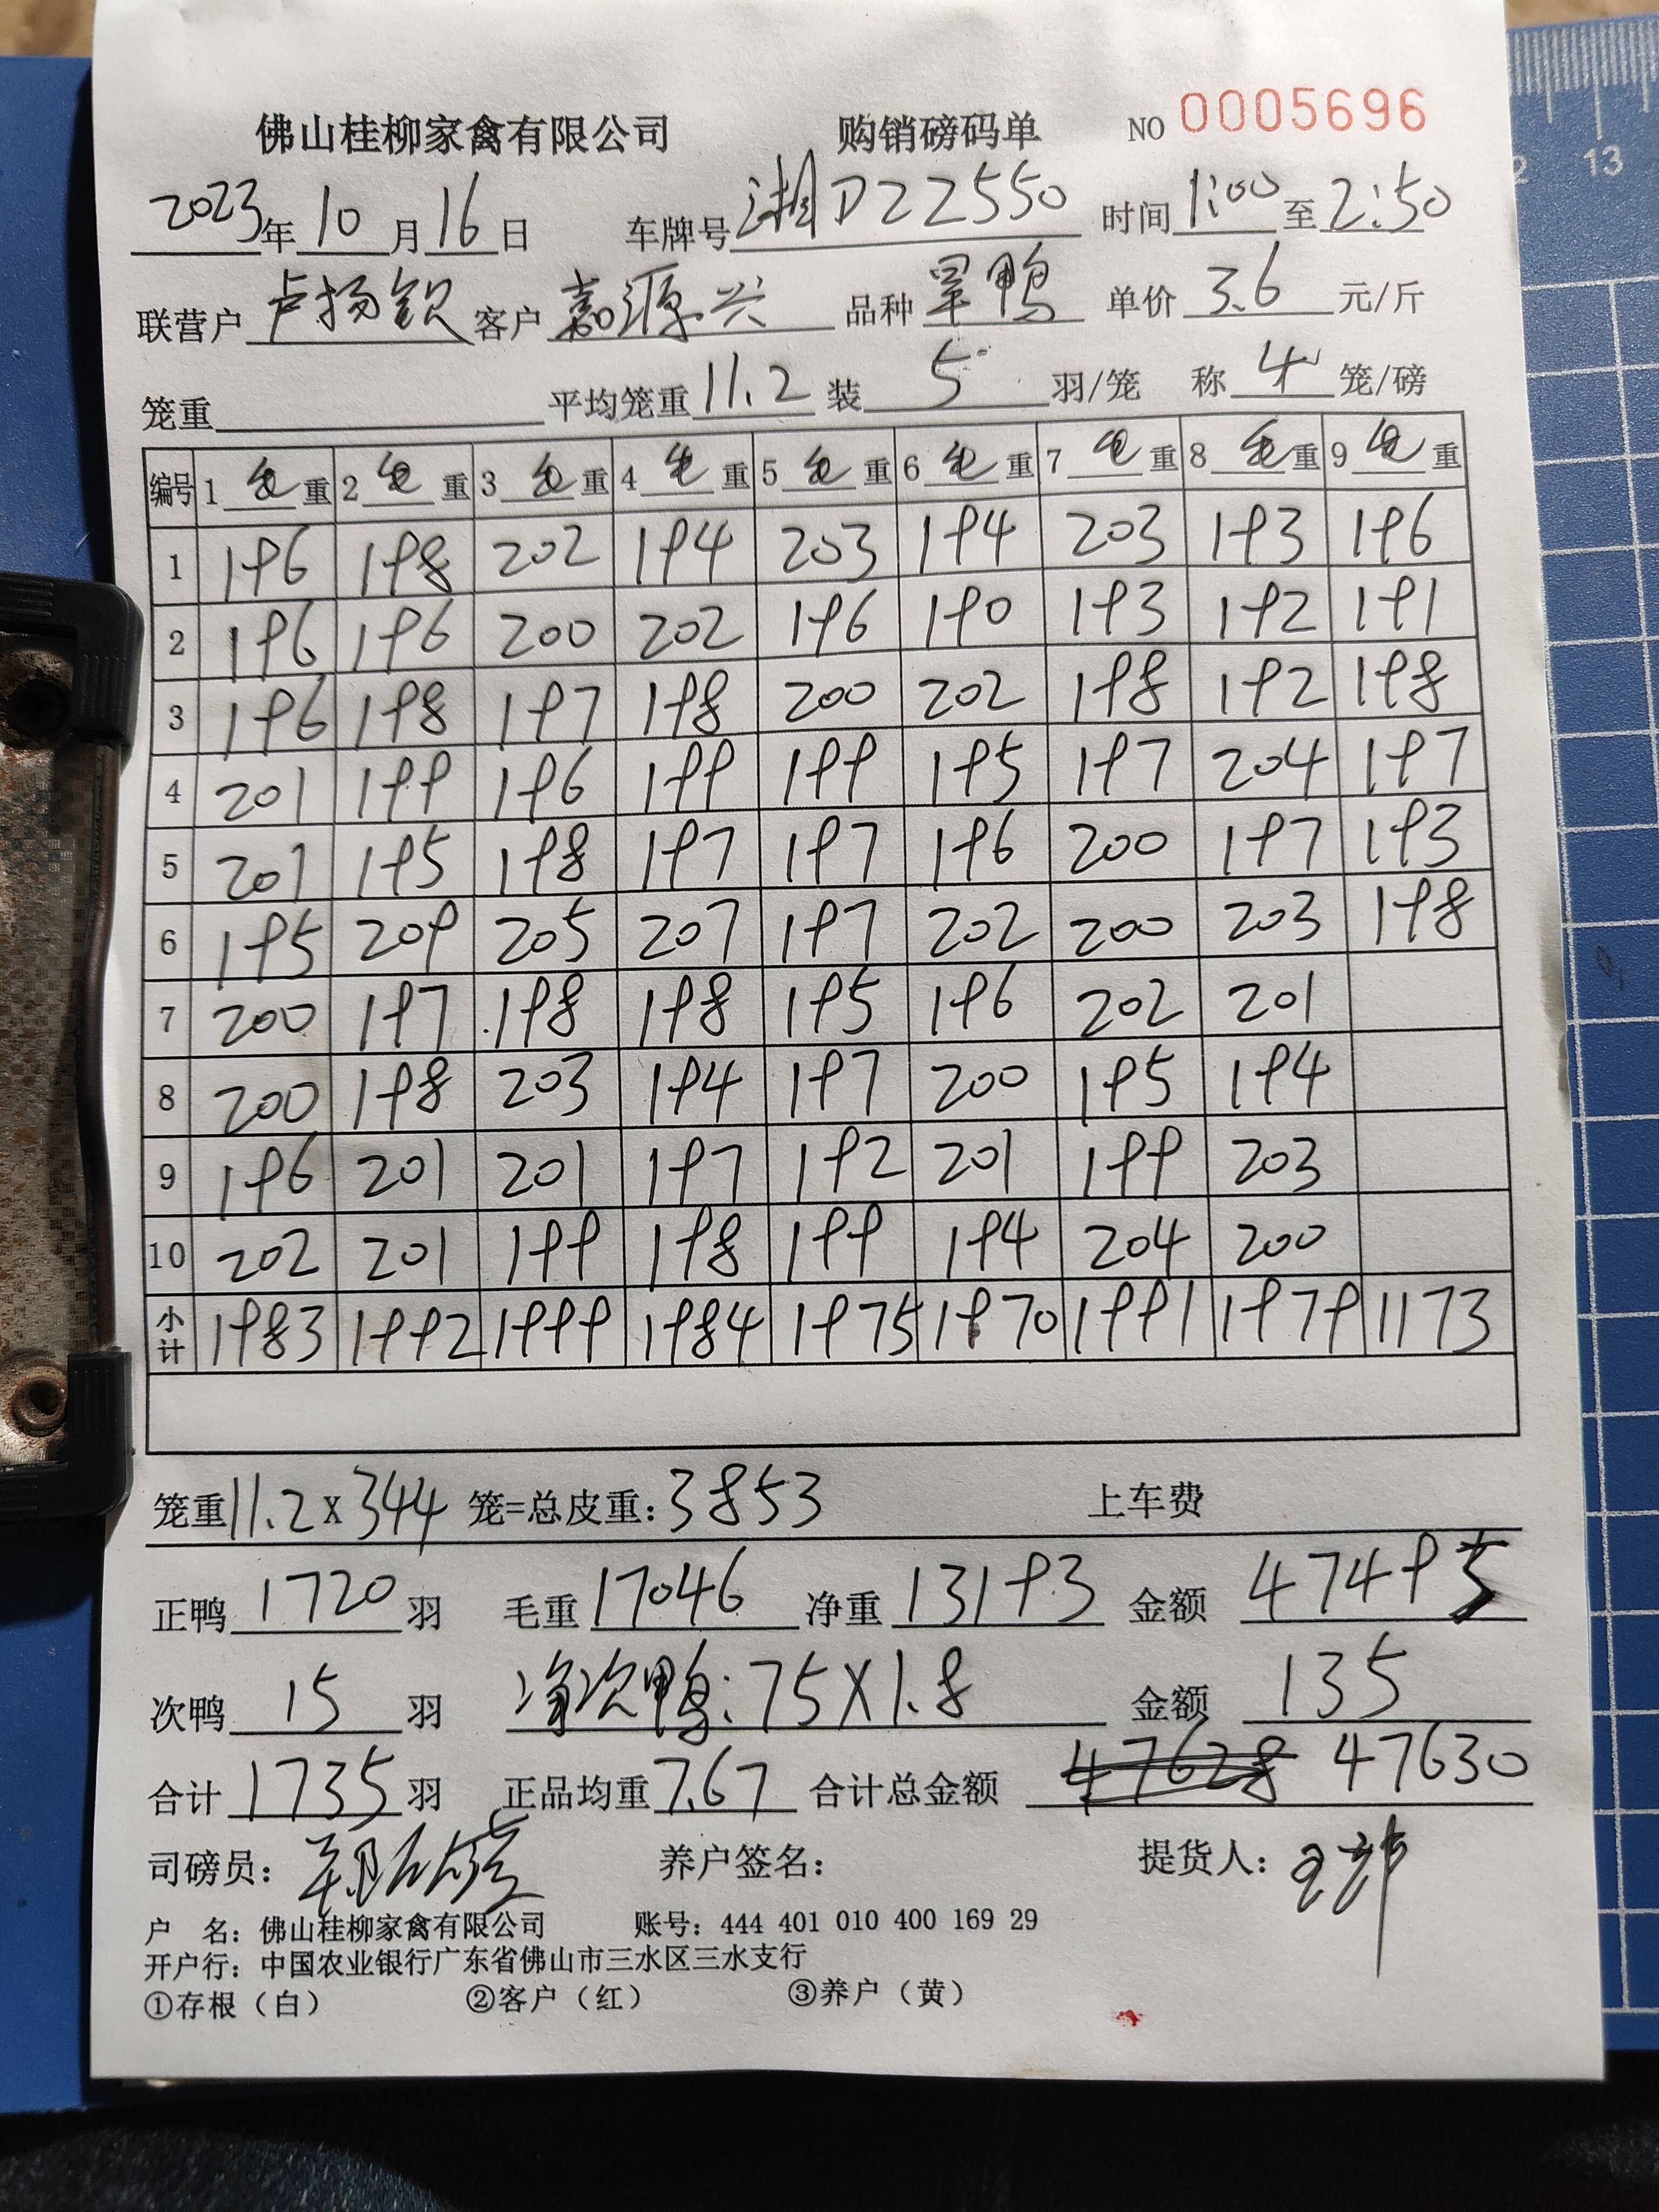 佛山桂柳家禽有限公司 购销磅码单 NO 0005696
2023年10月16日 车牌号 湘D22550 时间 1:00 至 2:50
联营户 卢扬钦 客户 嘉源兴 品种 旱鸭 单价 3.6 元/斤
笼重 平均笼重 11.2 装 5 羽/笼 称 4 笼/磅
编号 1 毛重 2 毛重 3 毛重 4 毛重 5 毛重 6 毛重 7 毛重 8 毛重 9 毛重
1 196 198 202 194 203 194 203 193 196
2 196 196 200 202 196 190 193 192 191
3 196 198 197 198 200 202 198 192 198
4 201 199 196 199 199 195 197 204 197
5 201 195 198 197 197 196 200 197 193
6 195 209 205 207 197 202 200 203 198
7 200 197 198 198 195 196 202 201
8 200 198 203 194 197 200 195 194
9 196 201 201 197 192 201 199 203
10 202 201 199 198 199 194 204 200
小计 1983 1992 1999 1984 1975 1970 1991 1979 1173
笼重 11.2 x 344 笼=总皮重: 3853 上车费
正鸭 1720 羽 毛重 17046 净重 13193 金额 47495
次鸭 15 羽 净次鸭: 75 X 1.8 金额 135
合计 1735 羽 正品均重 7.67 合计总金额 47628 47630
司磅员: 养户签名: 提货人:
户 名: 佛山桂柳家禽有限公司 账号: 444 401 010 400 169 29
开户行: 中国农业银行广东省佛山市三水区三水支行
①存根（白） ②客户（红） ③养户（黄）